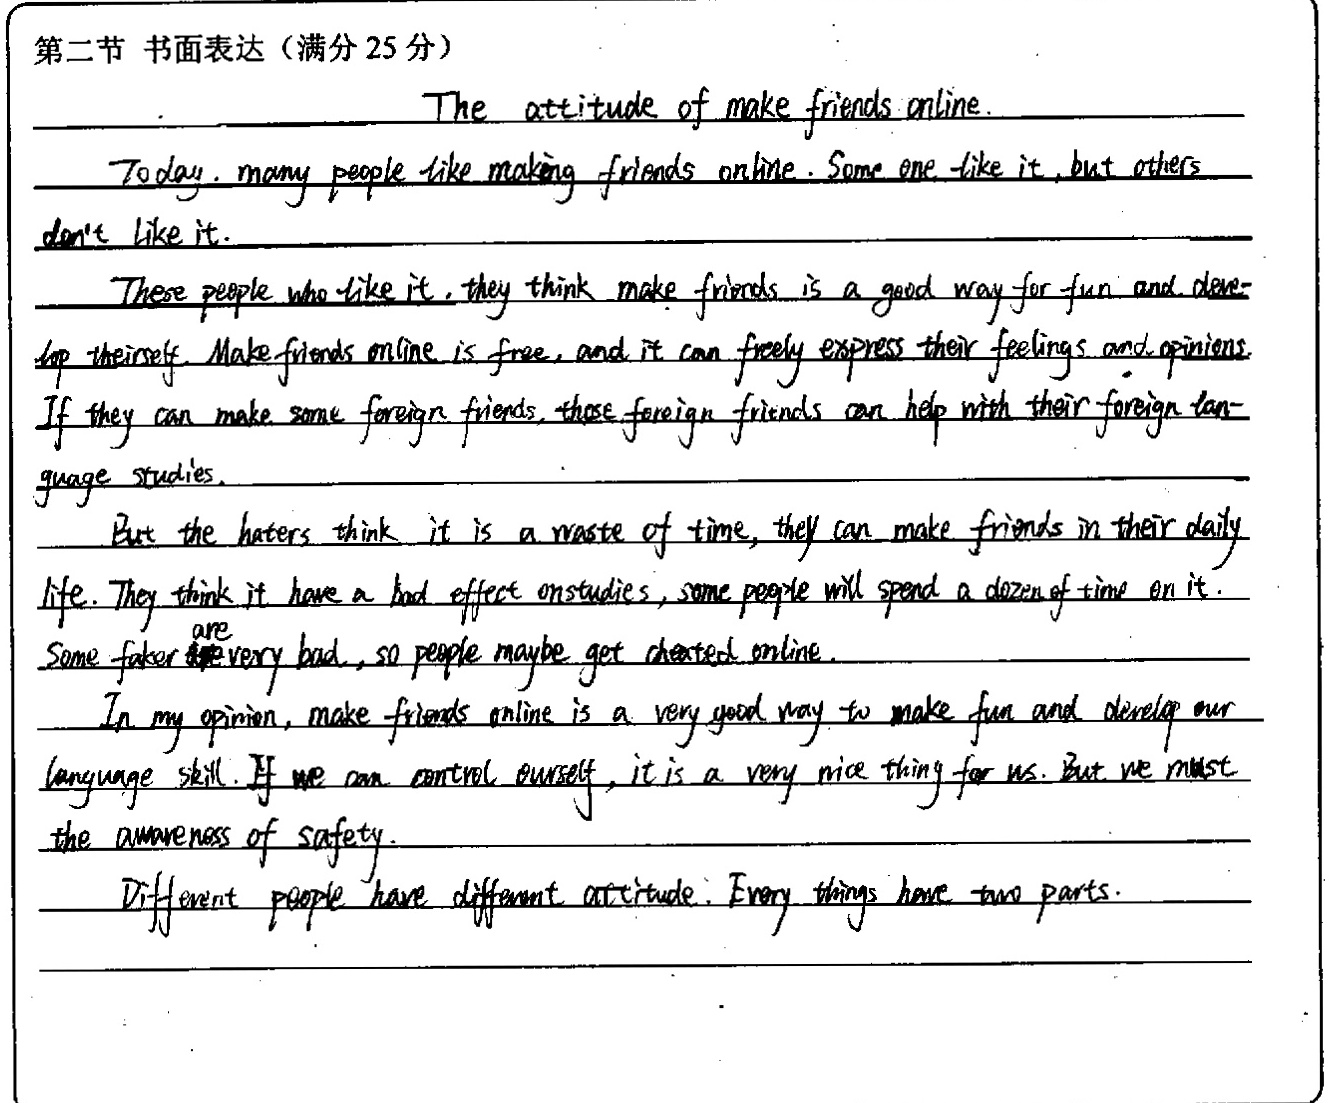 第二节 书面表达（满分 25 分）
The attitude of make friends online.
Today. many people like making friends online. Some one like it, but others
don't like it.
These people who like it, they think make friends is a good way for fun and deve-
lop theirself. Make friends online is free, and it can freely express their feelings and opinions.
If they can make some foreign friends, those foreign friends can help with their foreign lan-
guage studies.
But the haters think it is a waste of time, they can make friends in their daily
life. They think it have a bad effect on studies, some people will spend a dozen of time on it.
Some faker are very bad, so people maybe get cheated online.
In my opinion, make friends online is a very good way to make fun and develop our
language skill. If we can control ourself, it is a very nice thing for us. But we must
the awareness of safety.
Different people have different attitude. Every things have two parts.